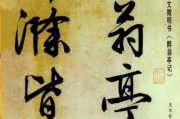 文徵明书《醉翁亭记》
翁亭
滁皆